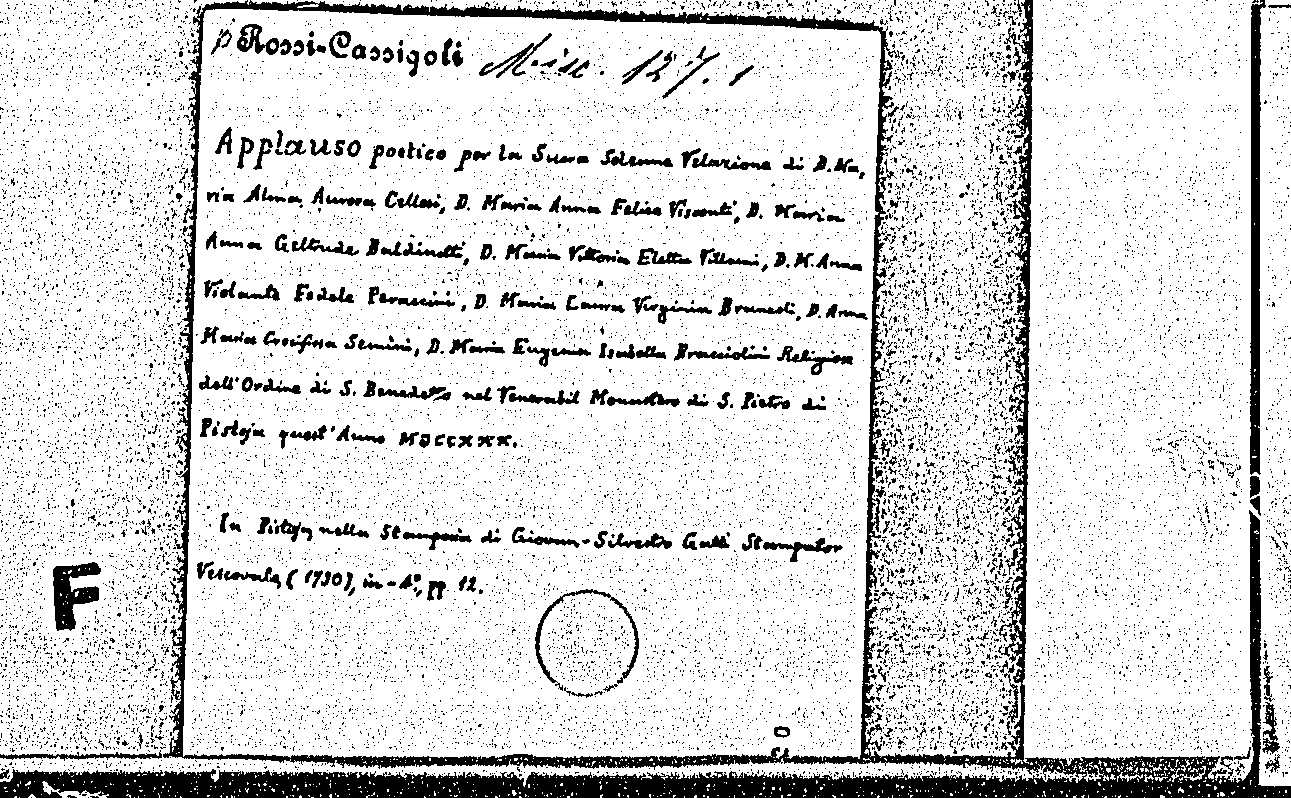 p Rossi-Cassigoli Misc. 127. 1
Applauso poetico per la Sacra Solenne Velazione di D. Ma,
ria Alma Aurora Cellesi, D. Maria Anna Felice Visconti, D. Maria
Anna Geltrude Baldinotti, D. Maria Vittoria Eletta Villani, D. M. Anna
Violante Fedele Peraccini, D. Maria Laura Virginia Brunesti, D. Anna
Maria Crocifissa Semini, D. Maria Eugenia Isabella Bracciolini Religiose
dell'Ordine di S. Benedetto nel Venerabil Monastero di S. Pietro di
Pistoja quest'Anno MDCCXXX.
In Pistoja, nella Stamperia di Giovan-Silvestro Gatti Stampator
Vescovale, (1730), in-4°, pp 12.
F